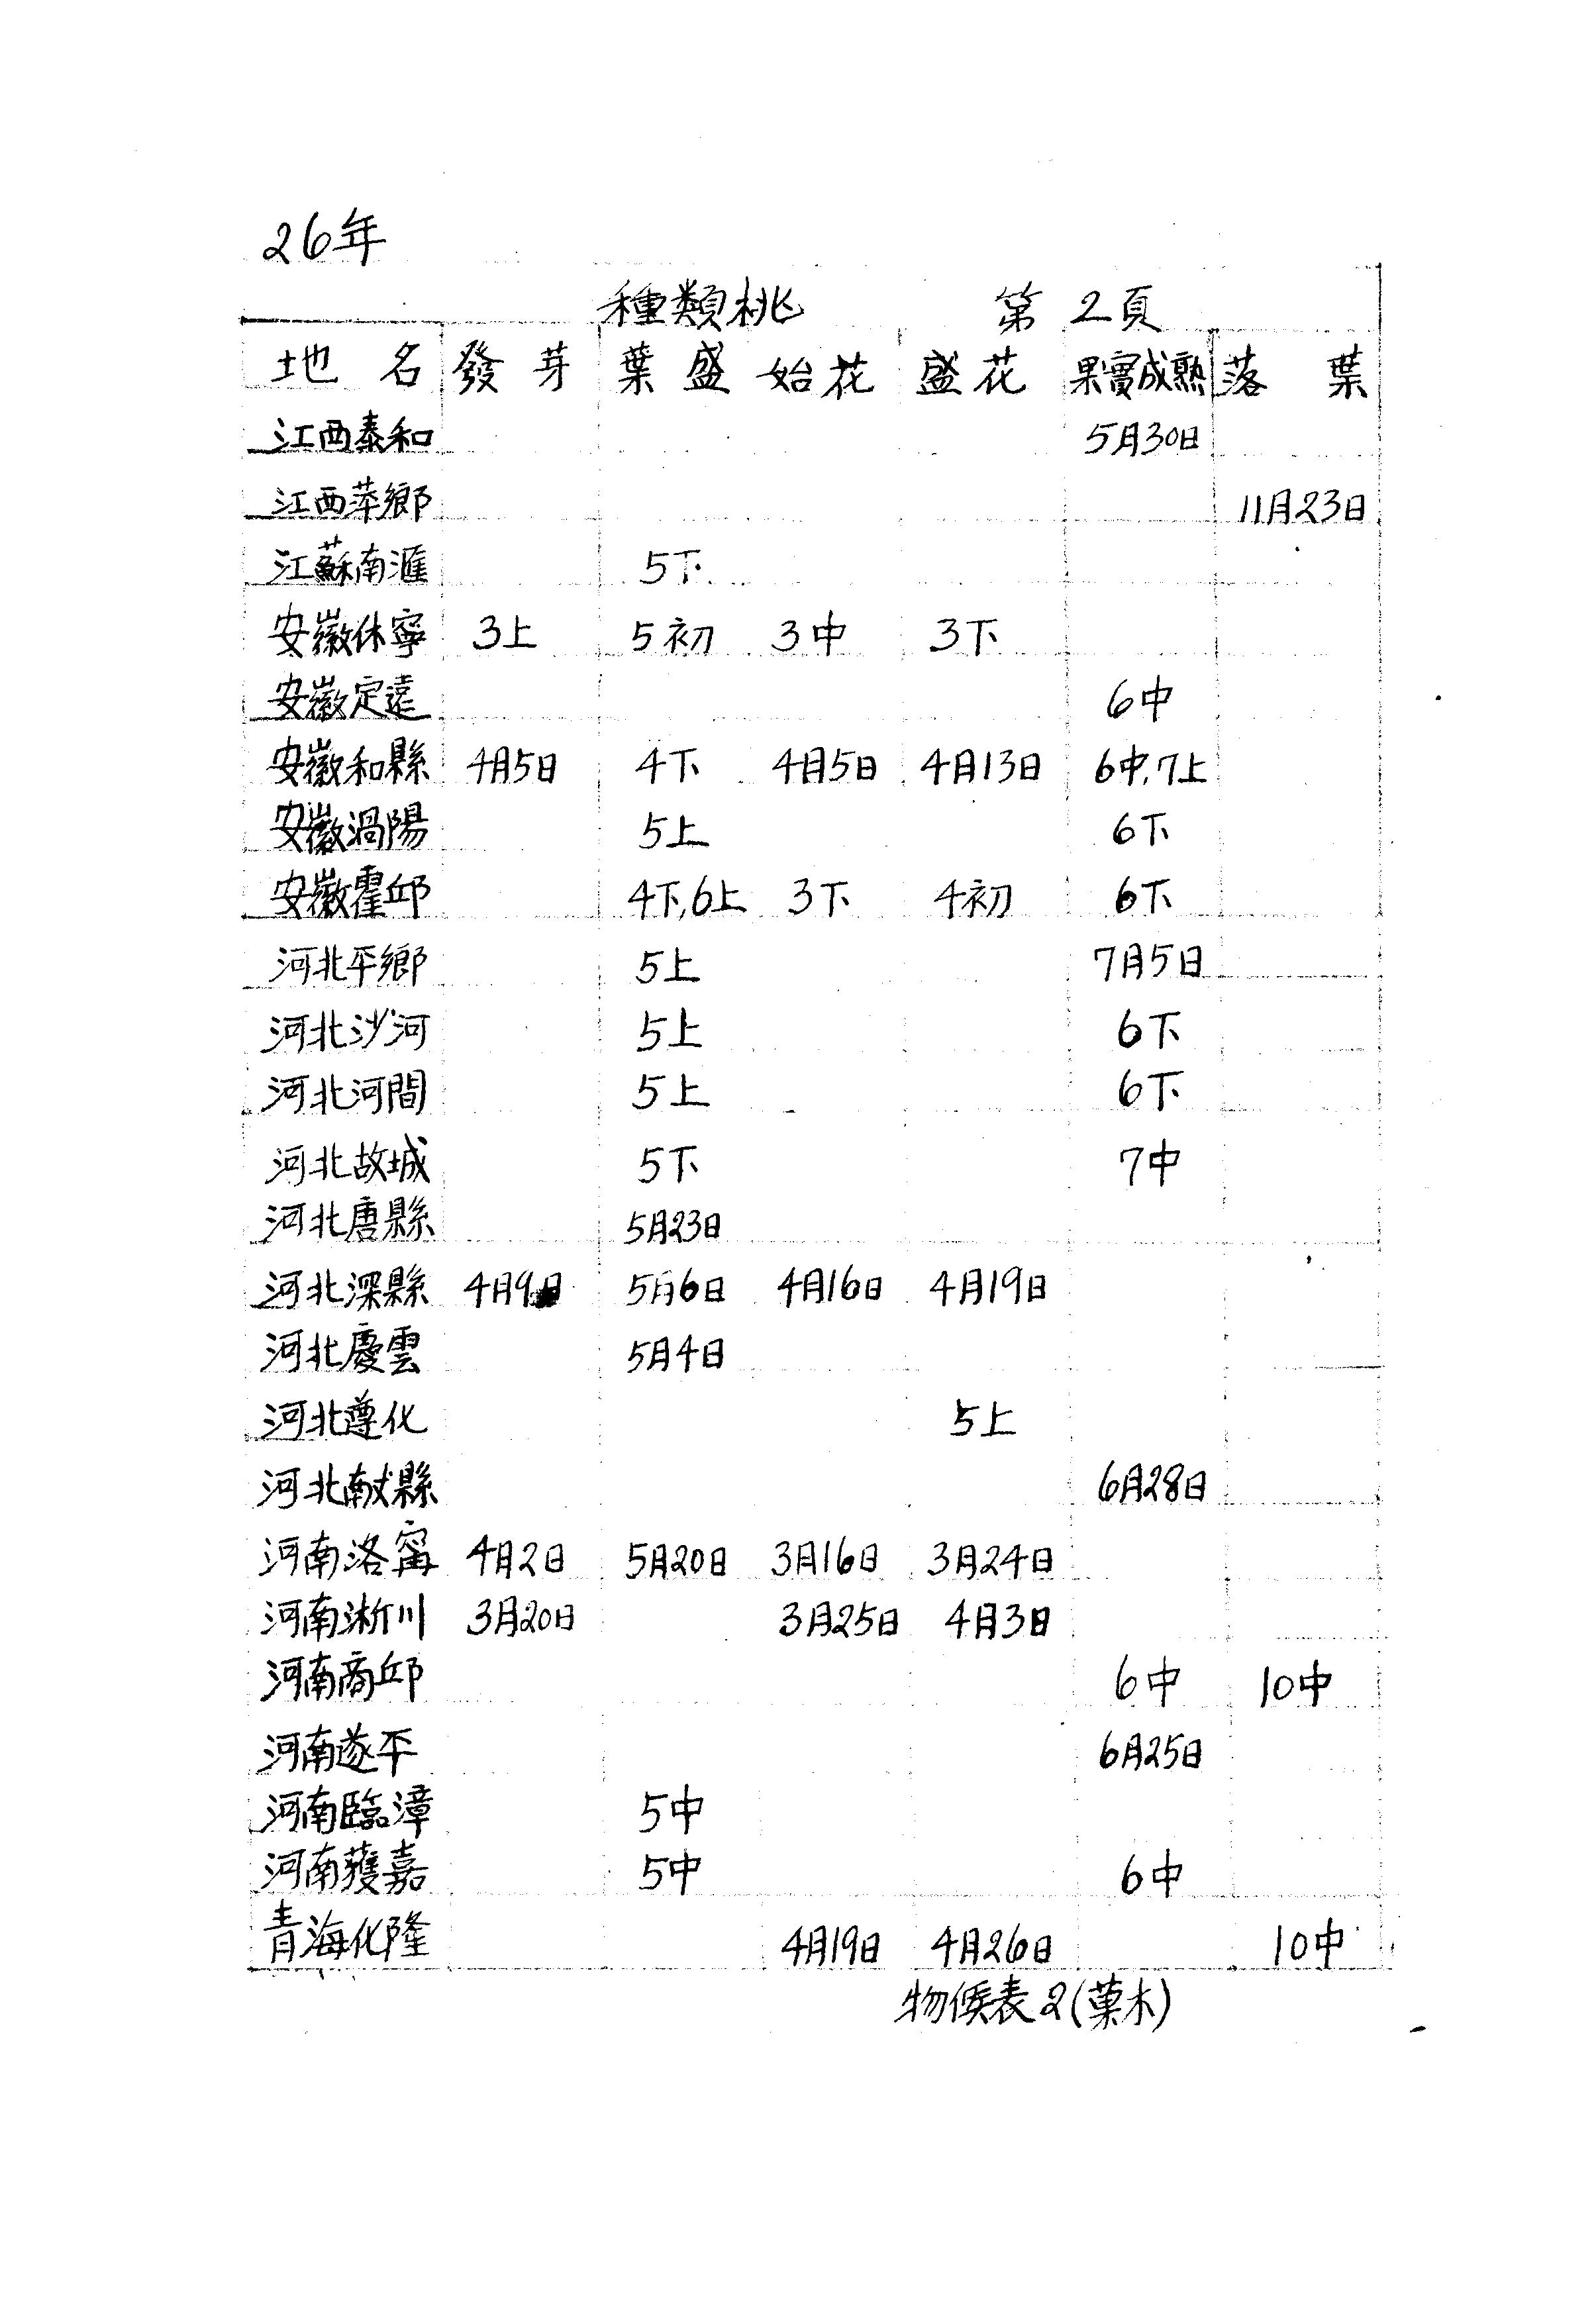 26年
種類桃 第2頁
地名 發芽 葉盛 始花 盛花 果實成熟 落葉
江西泰和 5月30日
江西萍鄉 11月23日
江蘇南滙 5下
安徽休寧 3上 5初 3中 3下
安徽定遠 6中
安徽和縣 4月5日 4下 4月5日 4月13日 6中,7上
安徽渦陽 5上 6下
安徽霍邱 4下,6上 3下 4初 6下
河北平鄉 5上 7月5日
河北沙河 5上 6下
河北河間 5上 6下
河北故城 5下 7中
河北唐縣 5月23日
河北深縣 4月9日 5月6日 4月16日 4月19日
河北慶雲 5月4日
河北遵化 5上
河北献縣 6月28日
河南洛甯 4月2日 5月20日 3月16日 3月24日
河南淅川 3月20日 3月25日 4月3日
河南商邱 6中 10中
河南遂平 6月25日
河南臨漳 5中
河南獲嘉 5中 6中
青海化隆 4月19日 4月26日 10中
物候表2(菓木)